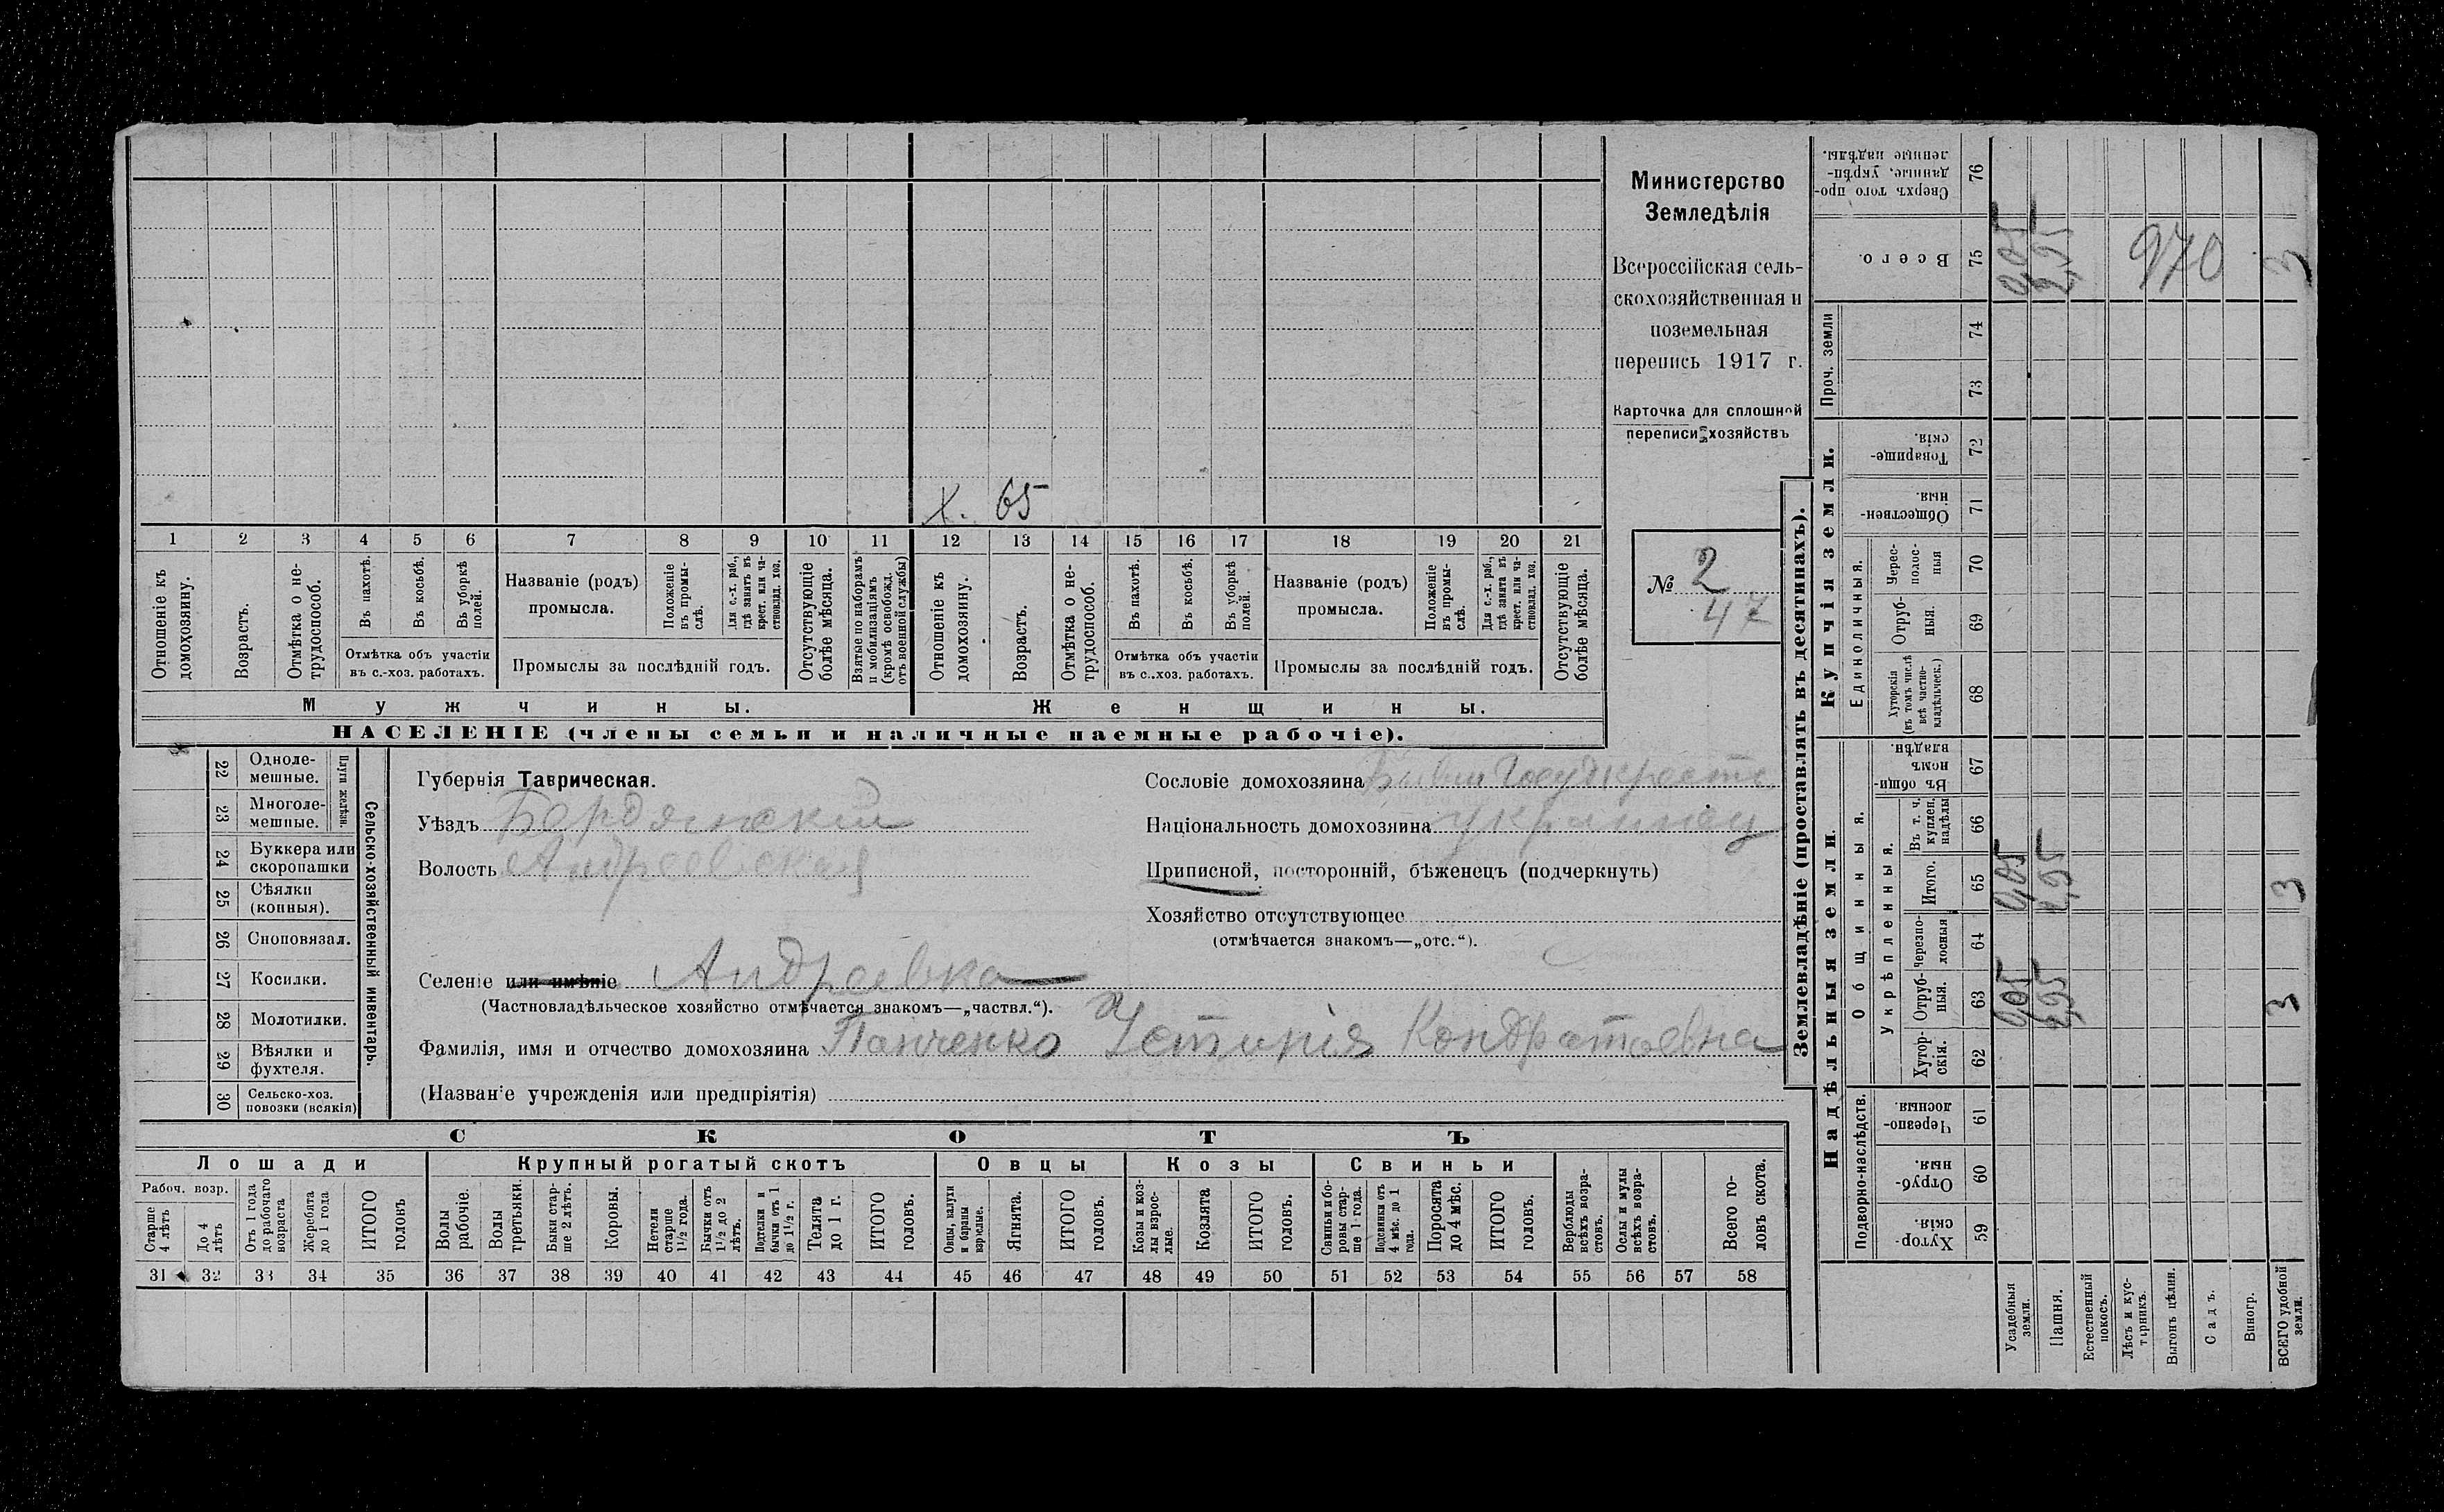 Министерство
Земледѣлія
Всероссійская сель-
скохозяйственная и
поземельная
перепись 1917 г.
Карточка для сплошной
переписи хозяйствъ
№ 2
47
х. 65
1 2 3 4 5 6 7 8 9 10 11 12 13 14 15 16 17 18 19 20 21
Отношеніе къ домохозяину.
Возрастъ.
Отмѣтка о не-трудоспособ.
Въ пахотѣ.
Въ косьбѣ.
Въ уборкѣ полей.
Отмѣтка объ участіи
въ с.-хоз. работахъ.
Названіе (родъ)
промысла.
Положеніе въ промы-слѣ.
Для с.-х. раб., гдѣ занятъ въ крест. или ча-стновлад. хоз.
Промыслы за послѣдній годъ.
Отсутствующіе болѣе мѣсяца.
Взятые по наборамъ и мобилизаціямъ (кромѣ освобожд. отъ военной службы)
Отношеніе къ домохозяину.
Возрастъ.
Отмѣтка о не-трудоспособ.
Въ пахотѣ.
Въ косьбѣ.
Въ уборкѣ полей.
Отмѣтка объ участіи
въ с.-хоз. работахъ.
Названіе (родъ)
промысла.
Положеніе въ промы-слѣ.
Для с.-х. раб., гдѣ занята въ крест. или ча-стновлад. хоз.
Промыслы за послѣдній годъ.
Отсутствующіе болѣе мѣсяца.
Мужчины.
Женщины.
НАСЕЛЕНІЕ (члены семьи и наличные наемные рабочіе).
Сельско-хозяйственный инвентарь.
Плуги желѣзн.
22 Одноле-мешные.
23 Многоле-мешные.
24 Буккера или скоропашки
25 Сѣялки (конныя).
26 Сноповязал.
27 Косилки.
28 Молотилки.
29 Вѣялки и фухтеля.
30 Сельско-хоз. повозки (всякія)
Губернія Таврическая.
Уѣздъ Бердянский
Волость Андреевская
Сословіе домохозяина Бывш Госуд крест
Національность домохозяина украинец
Приписной, посторонній, бѣженецъ (подчеркнуть)
Хозяйство отсутствующее
(отмѣчается знакомъ—„отс.“).
Селеніе или имѣніе Андреевка
(Частновладѣльческое хозяйство отмѣчается знакомъ—„частвл.“).
Фамилія, имя и отчество домохозяина Панченко Устинія Кондратьевна
(Названіе учрежденія или предпріятія)
СКОТЪ
Лошади
Крупный рогатый скотъ
Овцы
Козы
Свиньи
Рабоч. возр.
Старше 4 лѣтъ
До 4 лѣтъ
Отъ 1 года до рабочаго возраста
Жеребята до 1 года
ИТОГО головъ
Волы рабочіе.
Волы третьяки.
Быки стар-ше 2 лѣтъ.
Коровы.
Нетели старше 1½ года.
Бычки отъ 1½ до 2 лѣтъ.
Подтелки и бычки отъ 1 до 1½ г.
Телята до 1 г.
ИТОГО головъ.
Овцы, валухи и бараны взрослые.
Ягнята.
ИТОГО головъ.
Козы и коз-лы взрос-лые.
Козлята
ИТОГО головъ.
Свиньи и бо-ровы стар-ше 1 года.
Подсвинки отъ 4 мѣс. до 1 года.
Поросята до 4 мѣс.
ИТОГО головъ.
Верблюды всѣхъ возра-стовъ.
Ослы и мулы всѣхъ возра-стовъ.
Всего го-ловъ скота.
31 32 33 34 35 36 37 38 39 40 41 42 43 44 45 46 47 48 49 50 51 52 53 54 55 56 57 58
Землевладѣніе (проставлять въ десятинахъ).
Надѣльныя земли.
Купчія земли.
Проч. земли
Подворно-наслѣдств.
Общинныя.
Укрѣпленныя.
Единоличныя.
Хутор-скія. 59
Отруб-ныя. 60
Черезпо-лосныя 61
Хутор-скія. 62
Отруб-ныя. 63
Черезпо-лосныя 64
Итого. 65
Въ т. ч. куплен. надѣлы 66
Въ общи-номъ владѣн. 67
Хуторскія (въ томъ числѣ всѣ частно-владѣльческ.) 68
Отруб-ныя. 69
Черес-полос-ныя 70
Обществен-ныя. 71
Товарище-скія. 72
73
74
Всего. 75
Сверхъ того про-данные, укрѣп-ленные надѣлы. 76
Усадебныя земли.
0,05 0,05 0,05
Пашня.
2,95 2,95 2,95
Естественный покосъ.
Лѣсъ и кус-тарникъ.
Выгонъ цѣлин.
Садъ.
Виногр.
ВСЕГО удобной земли.
3 3 3
970